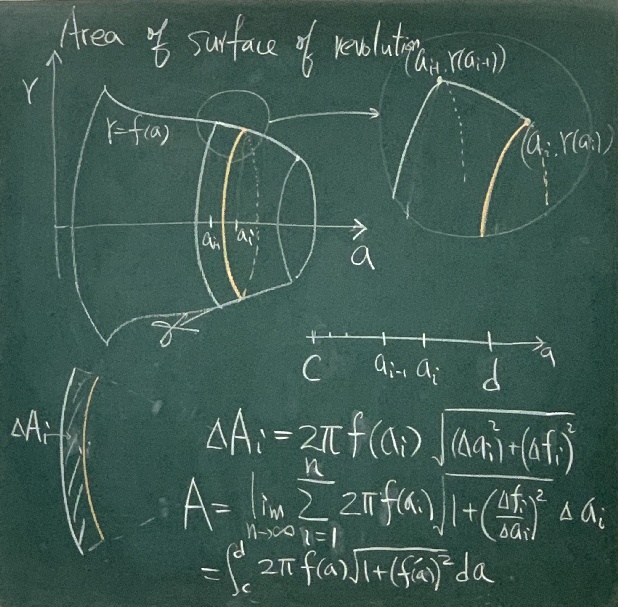 Area of surface of revolution
r
(aᵢ₋₁, r(aᵢ₋₁))
r=f(a)
(aᵢ, r(aᵢ))
aᵢ₋₁ aᵢ
a
C aᵢ₋₁ aᵢ d a
ΔAᵢ
ΔAᵢ = 2π f(aᵢ) √((Δaᵢ)²+(Δfᵢ)²)
A = lim_{n→∞} Σ_{i=1}^{n} 2π f(aᵢ) √(1+(Δfᵢ/Δaᵢ)²) Δaᵢ
= ∫_c^d 2π f(a) √(1+(f'(a))²) da